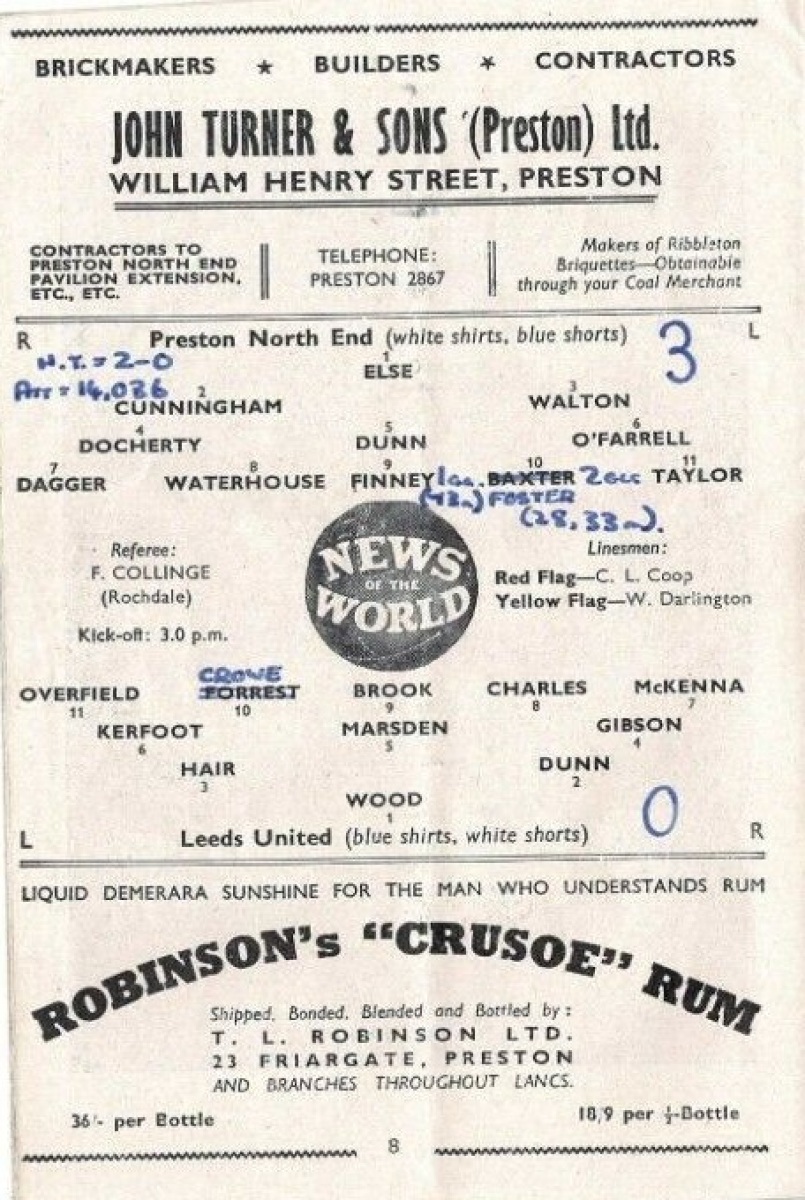 BRICKMAKERS ★ BUILDERS ★ CONTRACTORS
JOHN TURNER & SONS (Preston) Ltd.
WILLIAM HENRY STREET, PRESTON
CONTRACTORS TO
PRESTON NORTH END
PAVILION EXTENSION,
ETC., ETC.
TELEPHONE:
PRESTON 2867
Makers of Ribbleton
Briquettes—Obtainable
through your Coal Merchant
R Preston North End (white shirts, blue shorts) 3 L
H.T. = 2-0
1
ELSE
Att = 14,036
2 3
CUNNINGHAM WALTON
4 5 6
DOCHERTY DUNN O'FARRELL
7 8 9 10 11
DAGGER WATERHOUSE FINNEY BAXTER TAYLOR
FOSTER
(28, 33m).
Referee:
F. COLLINGE
(Rochdale)
Kick-off: 3.0 p.m.
NEWS
OF THE
WORLD
Linesmen:
Red Flag—C. L. Coop
Yellow Flag—W. Darlington
CROWE
OVERFIELD FORREST BROOK CHARLES McKENNA
11 10 9 8 7
KERFOOT MARSDEN GIBSON
6 5 4
HAIR DUNN
3 2
WOOD
1
0
L Leeds United (blue shirts, white shorts) R
LIQUID DEMERARA SUNSHINE FOR THE MAN WHO UNDERSTANDS RUM
ROBINSON's "CRUSOE" RUM
Shipped, Bonded, Blended and Bottled by:
T. L. ROBINSON LTD.
23 FRIARGATE, PRESTON
AND BRANCHES THROUGHOUT LANCS.
36/- per Bottle 18/9 per ½-Bottle
8